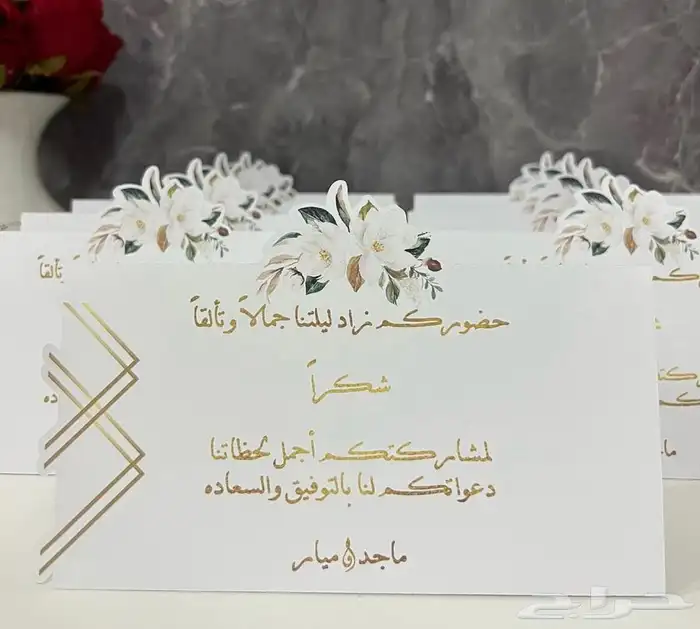 حضوركم زاد ليلتنا جمالاً وتألقاً
شكراً
لمشاركتكم أجمل لحظاتنا
دعواتكم لنا بالتوفيق والسعاده
ماجد و ميامر
تألقاً
ده
حراج